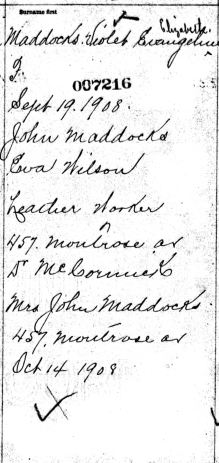 Surname first
Elizabeth
Maddocks. Violet Evangeline
F
007216
Sept 19. 1908.
John Maddocks
Eva Wilson
Leather Worker
457. Montrose av
Dr McCormick
Mrs John Maddocks.
457. Montrose av
Oct 14 1908